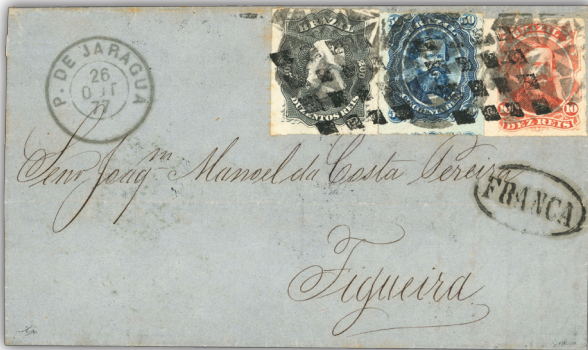 P. DE JARAGUÁ
26
OUT
77
BRAZIL
200
DUZENTOS REIS
BRAZIL
50
50
BRAZIL
10
10
DEZ REIS
Senr Joaqm Manoel da Costa Pereira
FRANCA
Figueira